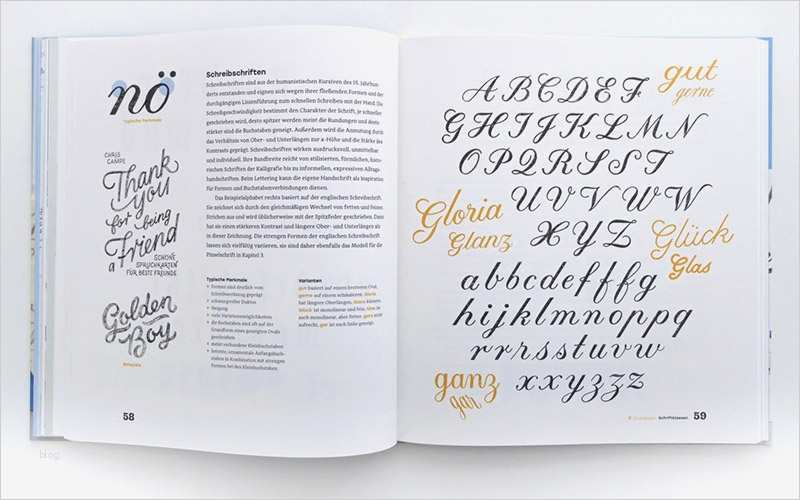 nö
Typische Merkmale
CHRIS
CAMPE
Thank
you
for being
a Friend
SCHÖNE
SPRUCHKARTEN
FÜR BESTE FREUNDE
Golden
Boy
Beispiele
Schreibschriften
Schreibschriften sind aus der humanistischen Kursiven des 15. Jahrhun-
derts entstanden und eignen sich wegen ihrer fließenden Formen und der
durchgängigen Linienführung zum schnellen Schreiben mit der Hand. Die
Schreibgeschwindigkeit bestimmt den Charakter der Schrift, je schneller
geschrieben wird, desto spitzer werden meist die Rundungen und desto
stärker sind die Buchstaben geneigt. Außerdem wird die Anmutung durch
das Verhältnis von Ober- und Unterlängen zur x-Höhe und die Stärke des
Kontrasts geprägt. Schreibschriften wirken ausdrucksvoll, unmittelbar
und individuell. Ihre Bandbreite reicht von stilisierten, förmlichen, kano-
nischen Schriften der Kalligrafie bis zu informellen, expressiven Alltags-
handschriften. Beim Lettering kann die eigene Handschrift als Inspiration
für Formen und Buchstabenverbindungen dienen.
Das Beispielalphabet rechts basiert auf der englischen Schreibschrift.
Sie zeichnet sich durch den gleichmäßigen Wechsel von fetten und feinen
Strichen aus und wird üblicherweise mit der Spitzfeder geschrieben. Dann
hat sie einen stärkeren Kontrast und längere Ober- und Unterlängen als
in dieser Zeichnung. Die strengen Formen der englischen Schreibschrift
lassen sich vielfältig variieren, sie sind daher ebenfalls das Modell für die
Pinselschrift in Kapitel 3.
Typische Merkmale
+ Formen sind deutlich vom
Schreibwerkzeug geprägt
+ schwungvoller Duktus
+ Neigung
+ viele Variationsmöglichkeiten
+ die Buchstaben sind oft auf der
Grundform eines geneigten Ovals
geschrieben
+ meist verbundene Kleinbuchstaben
+ betonte, ornamentale Anfangsbuch-
staben in Kombination mit strengen
Formen bei den Kleinbuchstaben
Varianten
gut basiert auf einem breiteren Oval,
gerne auf einem schmaleren.
hat längere Oberlängen, kürzere.
ist monolinear und fein,
auch monolinear, aber fetter. ganz steht
aufrecht, gar ist nach links geneigt.
58
A B C D E F
gut
gerne
G H I J K L M N
O P Q R S S T
Gloria
U U V V W W
Glanz
X X Y Z
Glück
Glas
a b b c d e f f f g
h i j k l m n o p p q
r r r s s t u v w
ganz
x x y z z z
gar
Schriftklassen 59
blog